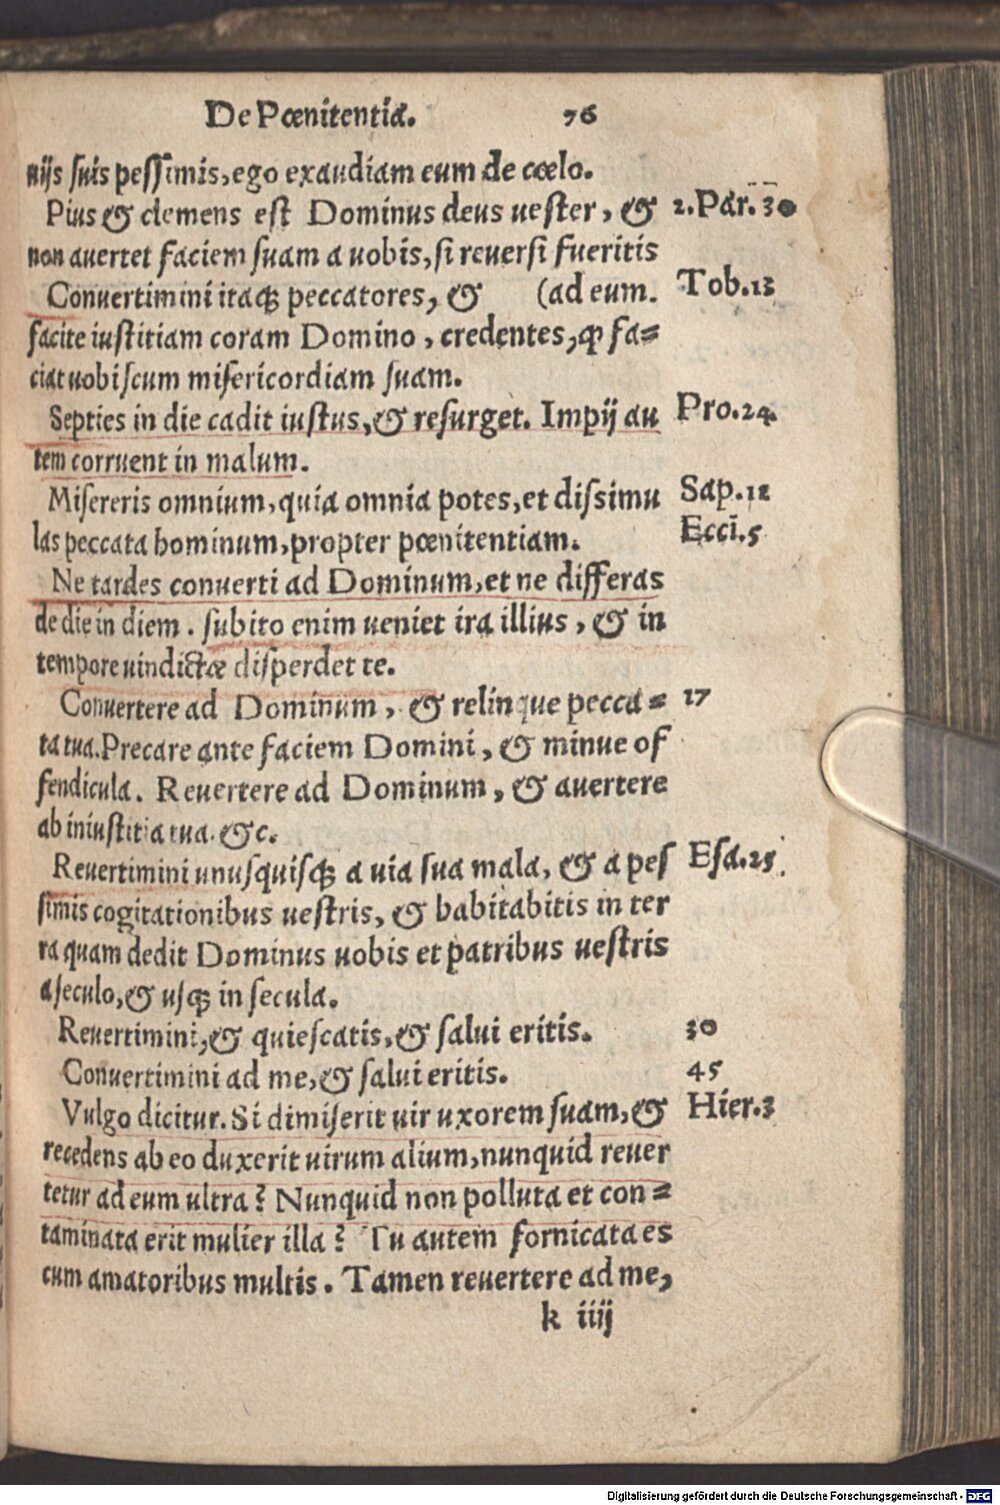 De Pœnitentia. 76
nijs suis pessimis, ego exaudiam eum de cœlo.
Pius & clemens est Dominus deus uester, & 2.Par.30
non auertet faciem suam a uobis, si reuersi fueritis
Conuertimini itaqꝫ peccatores, & (ad eum. Tob.13
facite iustitiam coram Domino, credentes, ꝙ fa=
ciat uobiscum misericordiam suam.
Septies in die cadit iustus, & resurget. Impij au Pro.24
tem corruent in malum.
Misereris omnium, quia omnia potes, et dissimu Sap.12
las peccata hominum, propter pœnitentiam. Eccĩ.5
Ne tardes conuerti ad Dominum, et ne differas
de die in diem. subito enim ueniet ira illius, & in
tempore uindictæ disperdet te.
Conuertere ad Dominum, & relinque pecca= 17
ta tua. Precare ante faciem Domini, & minue of
fendicula. Reuertere ad Dominum, & auertere
ab iniustitia tua. &c.
Reuertimini unusquisqꝫ a uia sua mala, & a pes Esa.25
simis cogitationibus uestris, & habitabitis in ter
ra quam dedit Dominus uobis et patribus uestris
a seculo, & usqꝫ in secula.
Reuertimini, & quiescatis, & salui eritis. 30
Conuertimini ad me, & salui eritis. 45
Vulgo dicitur. Si dimiserit uir uxorem suam, & Hier.3
recedens ab eo duxerit uirum alium, nunquid reuer
tetur ad eum ultra? Nunquid non polluta et con=
taminata erit mulier illa? Tu autem fornicata es
cum amatoribus multis. Tamen reuertere ad me,
k iiij
Digitalisierung gefördert durch die Deutsche Forschungsgemeinschaft - DFG